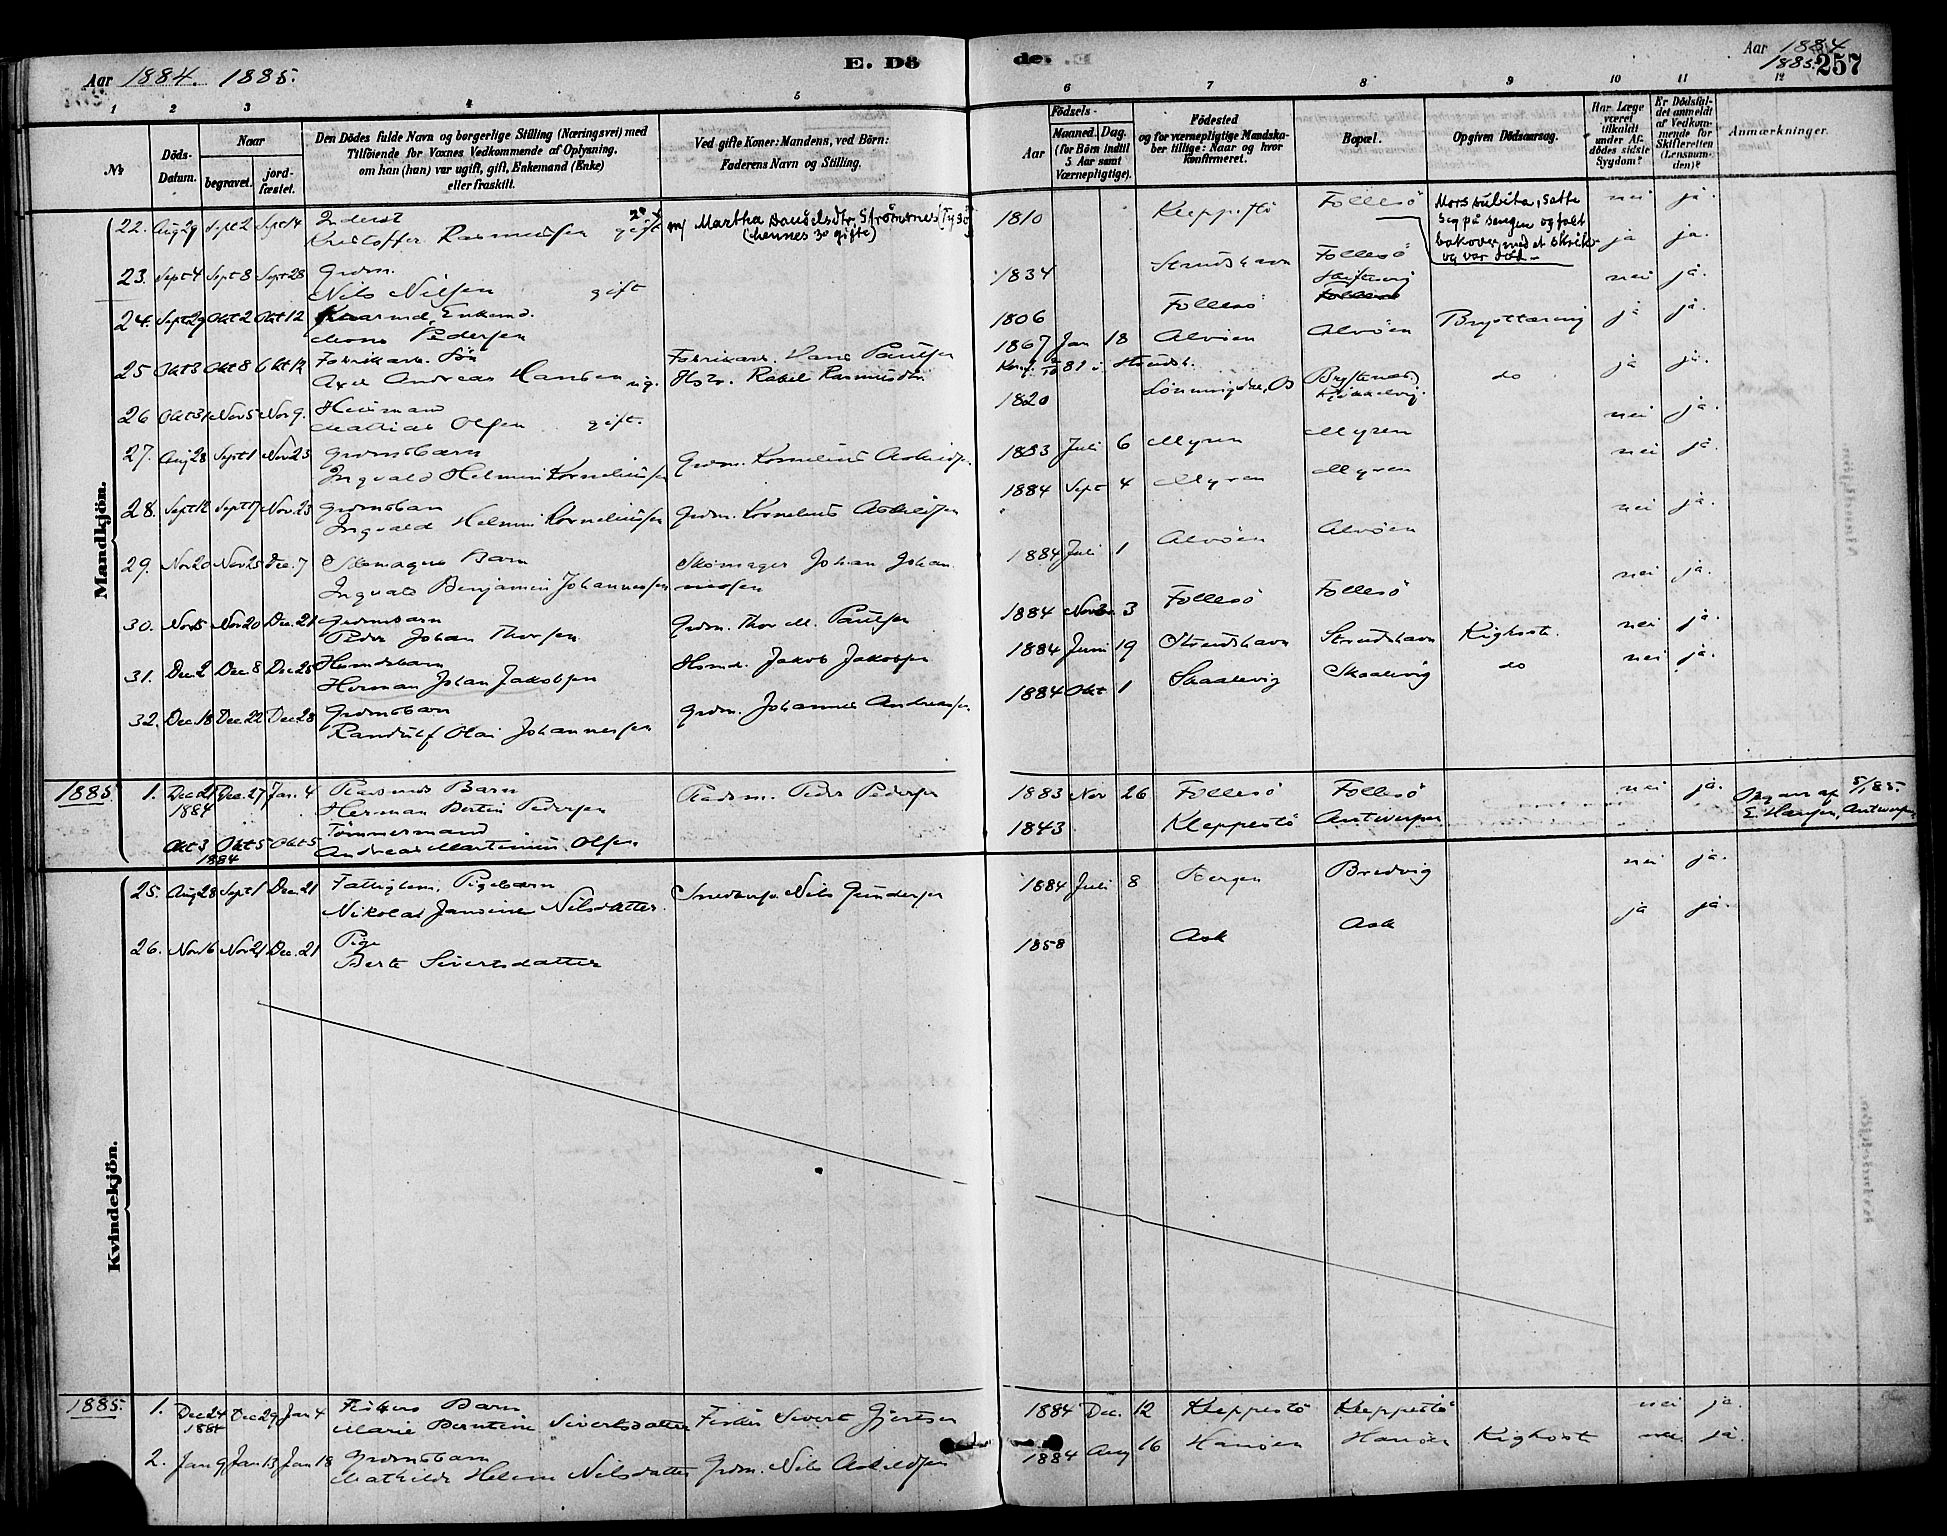 Aar 1884. 1885.
E. Dö
de.
Aar 1884
1885.
257
1 2 3 4 5
6 7 8 9 10 11 12
No
Döds-Datum.
Naar
begravet.
jord-fæstet.
Den Dödes fulde Navn og borgerlige Stilling (Næringsvei) med
Tilföiende for Voxnes Vedkommende af Oplysning,
om han (hun) var ugift, gift, Enkemand (Enke)
eller fraskilt.
Ved gifte Koner: Mandens, ved Börn:
Faderens Navn og Stilling.
Födsels-
Aar
Maaned. Dag.
(for Börn indtil
5 Aar samt
Værnepligtige).
Födested
og for værnepligtige Mandska-
ber tillige: Naar og hvor
Konfirmeret.
Bopæl.
Opgiven Dödsaarsag.
Har Læge
været
tilkaldt
under Af-
dödes sidste
Sygdom?
Er Dödsfal-
det anmeldt
af Vedkom-
mende for
Skifteretten
(Lensman-
den)?
Anmærkninger.
Mandkjön.
22. Aug 29 Sept 2 Sept 14 Inderst
Kristoffer Rasmussen gift m/ Martha Danielsdtr. Strømsnes
(hennes 3e gifte)
1810 Kleppestö Follesö nei ja.
Mors subita, satte
seg på sengen og falt
bakover med et skrik
og var död.
23. Sept 4 Sept 8 Sept 28 Grdm.
Nils Nilsen gift
1834 Strudshavn Follesö ja ja.
24. Sept 29 Okt 2 Okt 12 Enkemd.
Mons Pedersen
1806 Follesö nei ja.
25 Okt 3 Okt 8 Okt 12 Fabrikarb. Sön
Axel Andreas Hansen ug.
Fabrikarb. Hans Paulsen
Hstr. Rakel Rasmusdtr.
1867 Jan 18 Alvöen Alvöen Brysttæring ja ja.
26 Okt 31 Nov 5 Nov 9. Huusmand
Mathias Olsen gift.
1820 do ja ja.
27. Aug 28 Sept 1 Nov 23 Grdmsbarn
Ingvald Helmin Korneliussen Grdm. Kornelius Askildsen
1883 Juli 6 Myren Myren nei ja.
28. Sept 12 Sept 17 Nov. 23 Grdmsbarn
Ingvald Helmin Korneliussen Grdm. Kornelius Askildsen
1884 Sept 4 Myren Myren nei ja
29. Nov 20 Nov 25 Dec. 7 Skomagers Barn
Ingvald Benjamin Johannessen
Skomager Johan Johan-
nessen
1884 Juli 1 Alvöen Alvöen nei ja.
30. Nov 15 Nov 20 Dec. 21 Grdmsbarn
Peder Johan Thorsen Grdm. Thor M. Paulsen
1884 Nov 3 Follesö Follesö nei ja.
31. Dec 2 Dec 8 Dec 26 Husmdsbarn
Herman Johan Jakobsen Husmd. Jakob Jakobsen
1884 Juni 19 Strudshavn Strudshavn Kighoste. nei ja.
32. Dec 18 Dec 22 Dec 28 Grdmsbarn
Randulf Olai Johannessen Grdm. Johannes Andreassen
1884 Okt 1 Skaalevig Skaalevig do nei ja.
1885 1. Dec 21 Dec. 27 Jan. 4
1884 Pladsmds Barn
Herman Bertin Pedersen Pladsm. Peder Pedersen
1883 Nov 26 Follesö Follesö nei ja.
Okt 3 Okt 5 Okt 5
1884 Tömmermand
Andreas Martinius Olsen.
1843 Kleppestö Antwerpen
Opg. af 5/1 85.
E. Hansen, Antwerpen
Kvindekjön.
25. Aug 28 Sept 1 Dec. 21 Fattiglem, Pigebarn
Nikolai Jansine Nilsdatter Snedkersv. Nils Gundersen
1884 Juli 8 Bergen Bredvig nei ja.
26. Nov 16 Nov 21 Dec. 21 Pige
Berte Sivertsdatter
1858 Ask Ask ja ja.
1885. 1. Dec 24 Dec 29 Jan 4
1884 Fiskers Barn
Marie Berntine Sivertsdatter Fisker Sivert Gjertsen
1884 Dec. 12 Kleppestö Kleppestö nei ja.
2. Jan 9 Jan 13 Jan 18 Grdmsbarn
Mathilde Helene Nilsdatter Grdm. Nils Askildsen
1884 Aug 16 Hanöen Hanöen Kighoste nei ja.